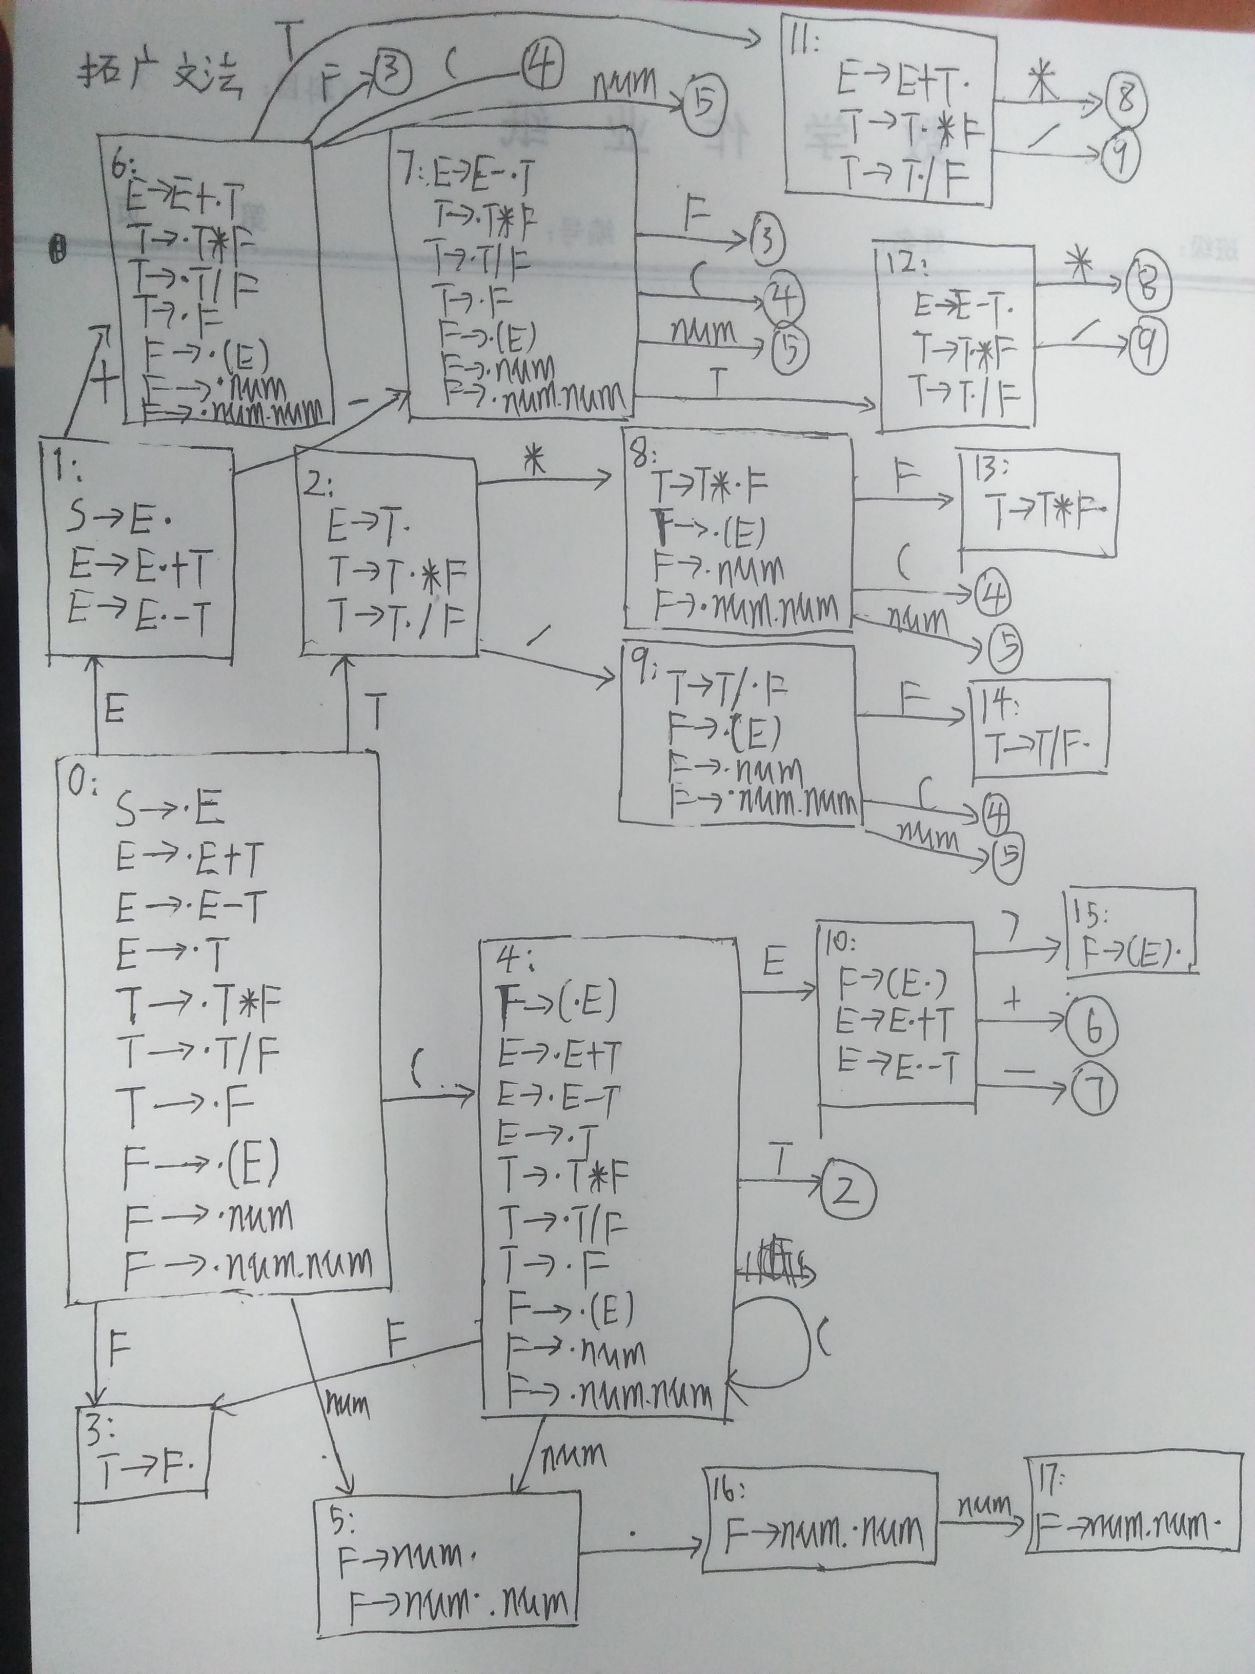 拓广文法
T
F
③
(
④
num
⑤
11:
E→E+T·
T→T·*F
T→T·/F
*
⑧
/
⑨
6:
E→E+·T
T→·T*F
T→·T/F
T→·F
F→·(E)
F→·num
F→·num.num
7:E→E-·T
T→·T*F
T→·T/F
T→·F
F→·(E)
F→·num
F→·num.num
F
③
(
④
num
⑤
T
12:
E→E-T·
T→T·*F
T→T·/F
*
⑧
/
⑨
+
-
1:
S→E·
E→E·+T
E→E·-T
2:
E→T·
T→T·*F
T→T·/F
*
/
8:
T→T*·F
F→·(E)
F→·num
F→·num.num
F
(
④
num
⑤
13:
T→T*F·
9:
T→T/·F
F→·(E)
F→·num
F→·num.num
F
(
④
num
⑤
14:
T→T/F·
E
T
0:
S→·E
E→·E+T
E→·E-T
E→·T
T→·T*F
T→·T/F
T→·F
F→·(E)
F→·num
F→·num.num
(
4:
F→(·E)
E→·E+T
E→·E-T
E→·T
T→·T*F
T→·T/F
T→·F
F→·(E)
F→·num
F→·num.num
E
10:
F→(E·)
E→E·+T
E→E·-T
)
15:
F→(E)·
+
⑥
-
⑦
T
②
(
F
F
num
num
3:
T→F·
5:
F→num·
F→num·.num
.
16:
F→num.·num
num
17:
F→num.num·